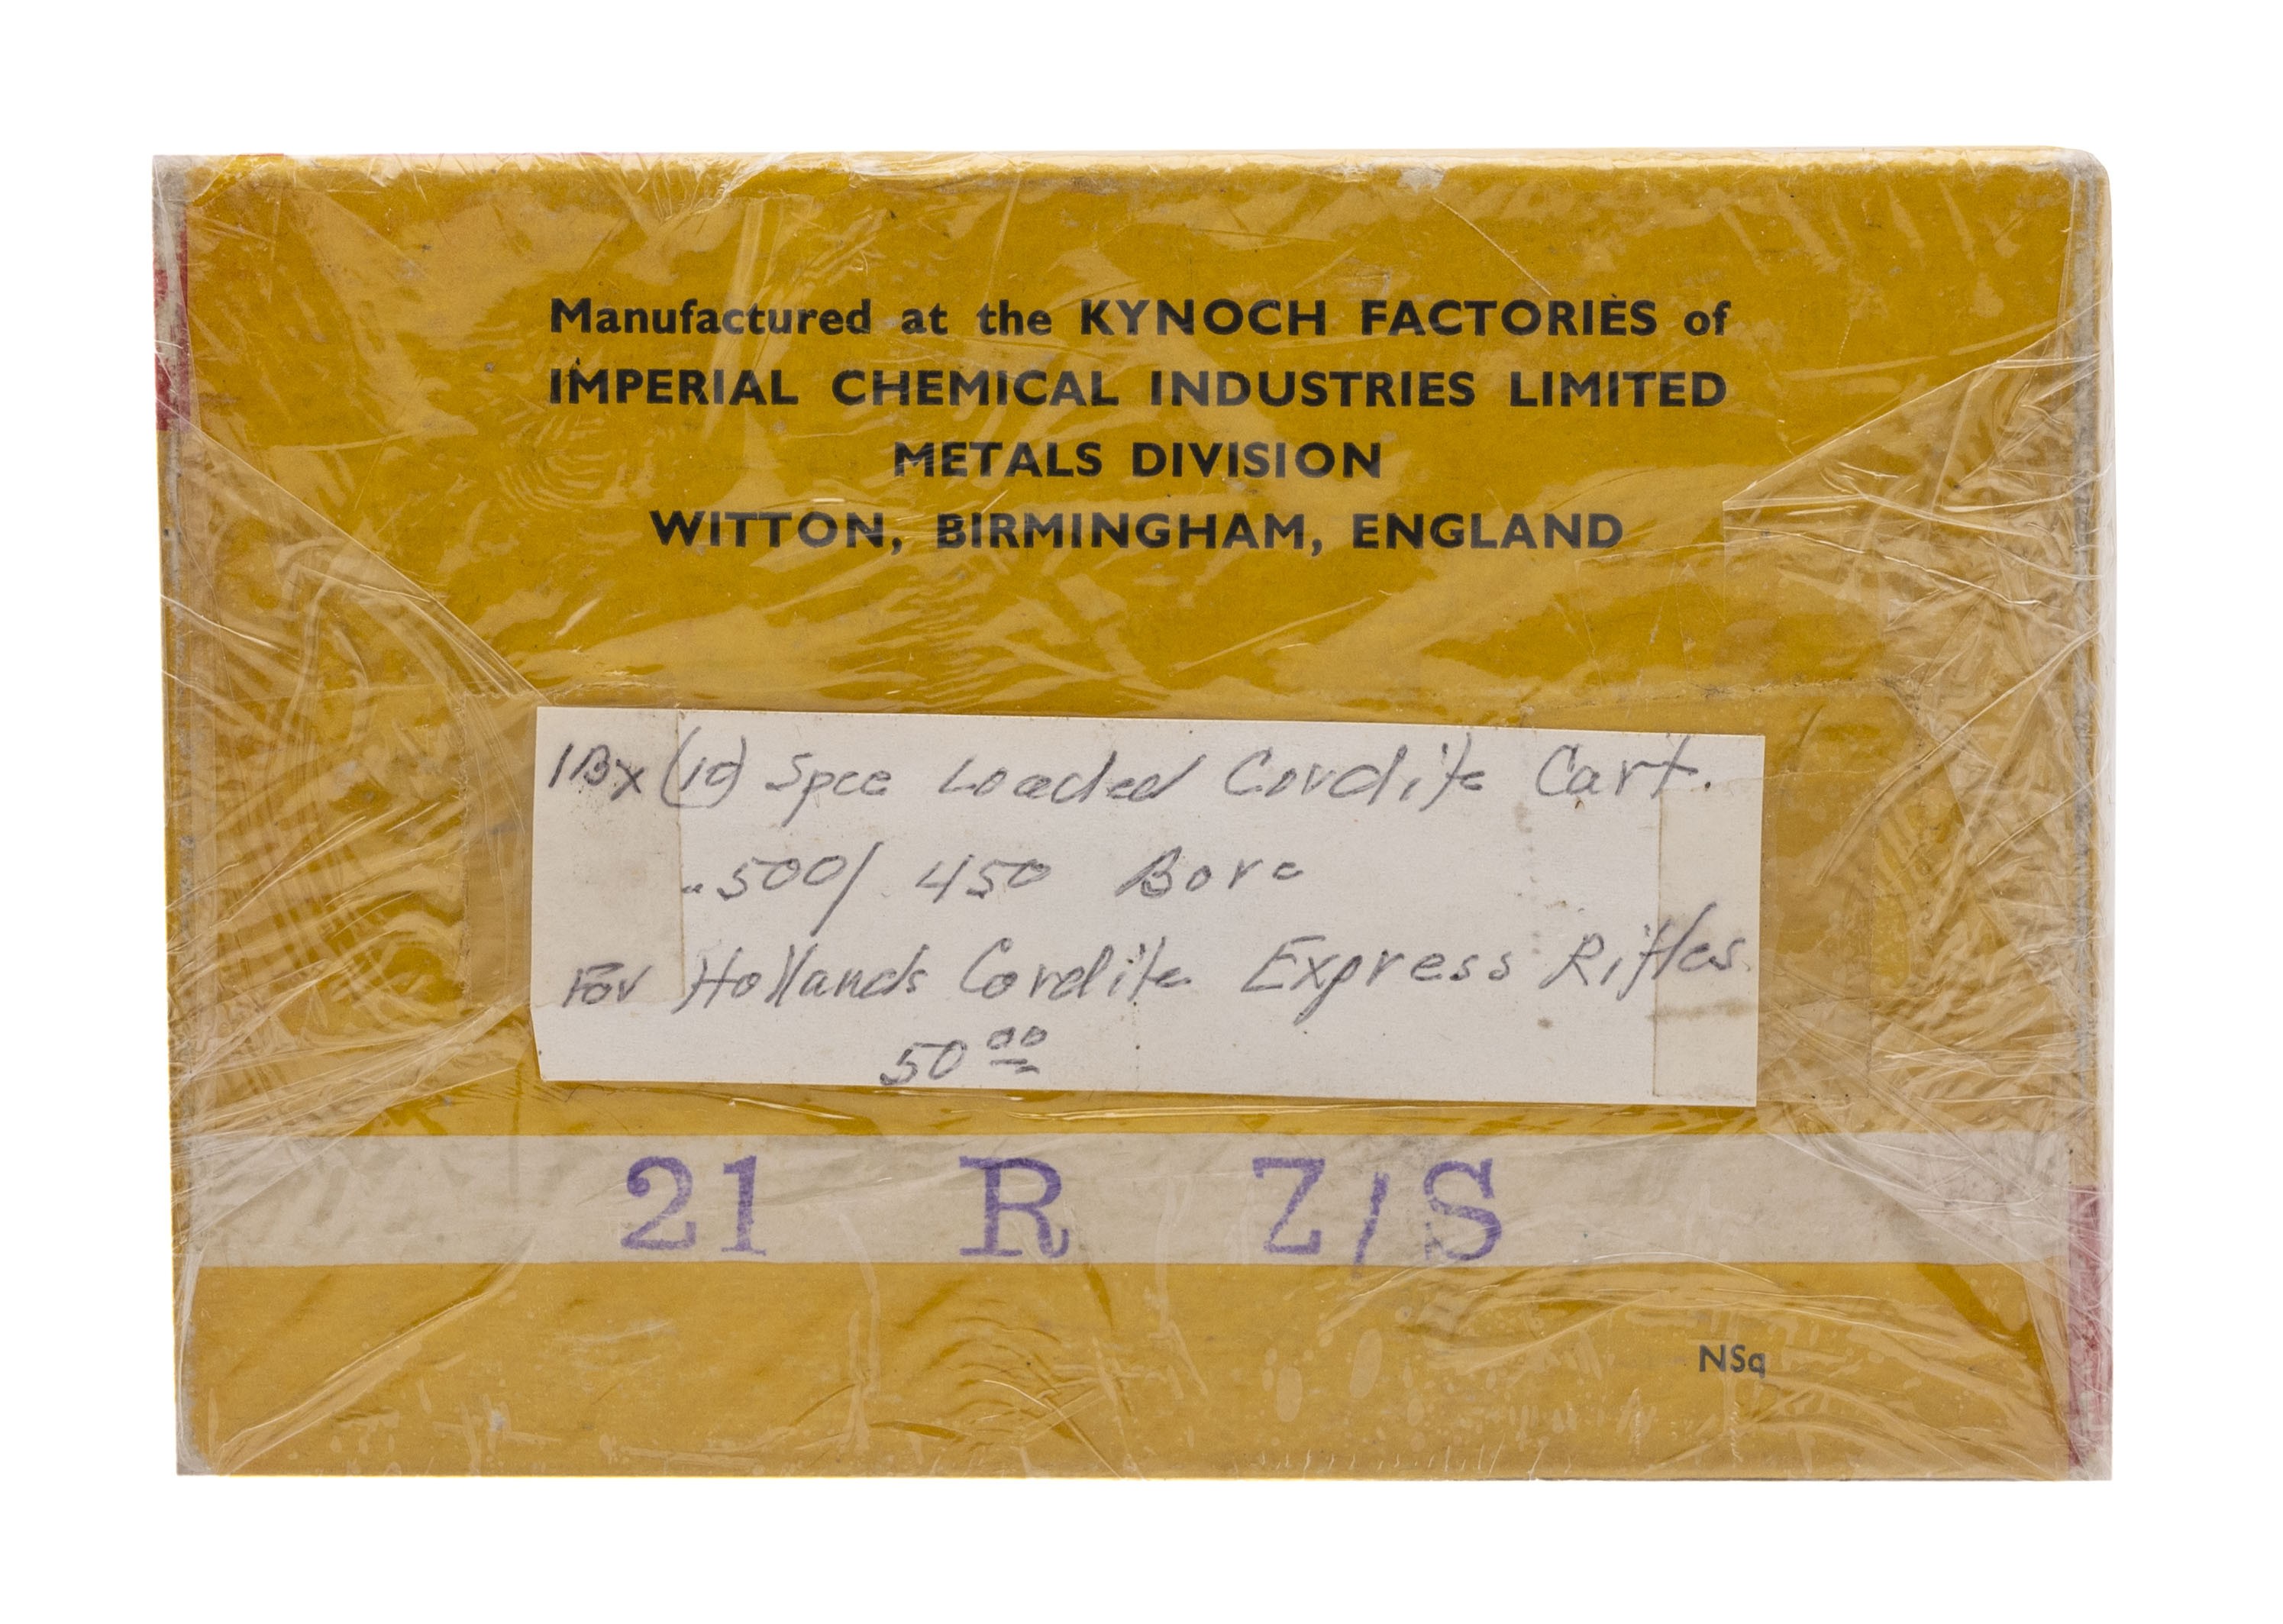 Manufactured at the KYNOCH FACTORIES of
IMPERIAL CHEMICAL INDUSTRIES LIMITED
METALS DIVISION
WITTON, BIRMINGHAM, ENGLAND
1Bx (10) Spec Loaded Cordite Cart.
.500/450 Bore
For Hollands Cordite Express Rifles
50 00
21 R Z/S
NSq